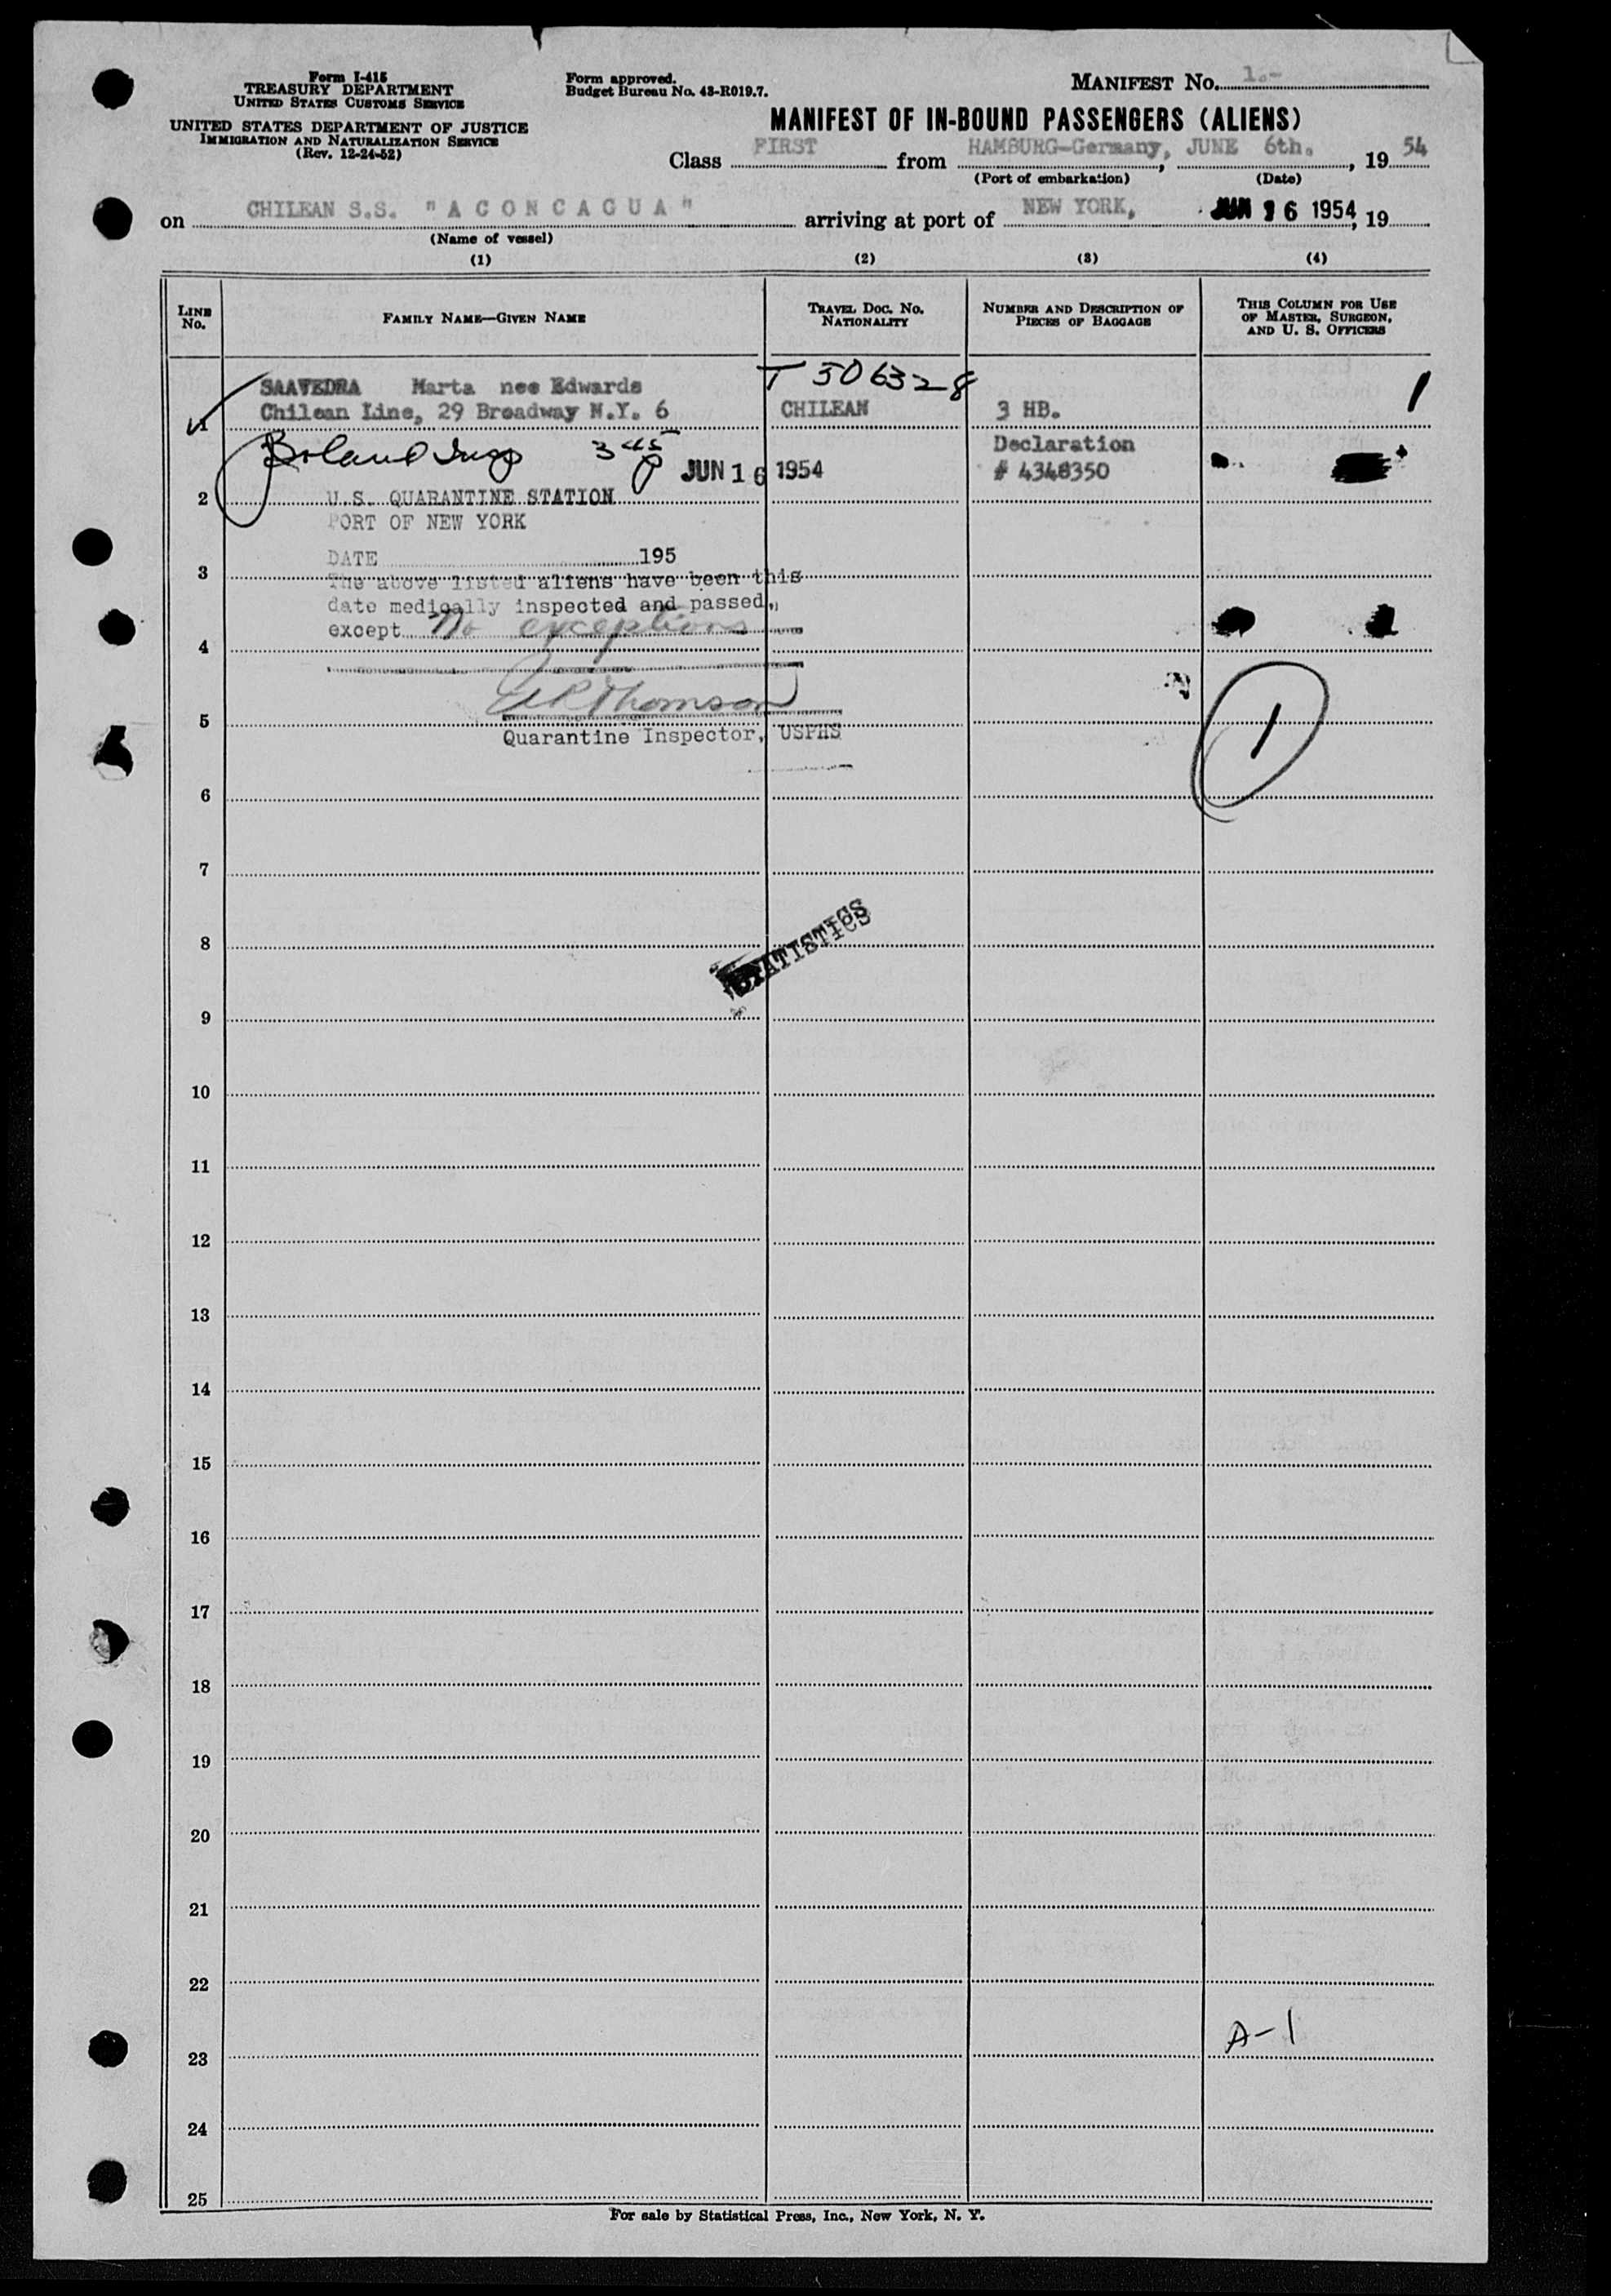 Form I-415
TREASURY DEPARTMENT
UNITED STATES CUSTOMS SERVICE
UNITED STATES DEPARTMENT OF JUSTICE
IMMIGRATION AND NATURALIZATION SERVICE
(Rev. 12-24-52)
Form approved.
Budget Bureau No. 43-R019.7.
MANIFEST No. 1.-
MANIFEST OF IN-BOUND PASSENGERS (ALIENS)
Class FIRST from HAMBURG-Germany, JUNE 6th., 19 54
(Port of embarkation) (Date)
on CHILEAN S.S. "ACONCAGUA" arriving at port of NEW YORK, JUN 16 1954, 19
(Name of vessel)
(1) (2) (3) (4)
LINE No. FAMILY NAME—GIVEN NAME TRAVEL DOC. No. NATIONALITY NUMBER AND DESCRIPTION OF PIECES OF BAGGAGE THIS COLUMN FOR USE OF MASTER, SURGEON, AND U. S. OFFICERS
SAAVEDRA Marta nee Edwards T 506328
1 Chilean Line, 29 Broadway N.Y. 6 CHILEAN 3 HB. 1
Declaration
345 JUN 16 1954 # 4348350
2 U.S. QUARANTINE STATION
PORT OF NEW YORK
DATE 195
3 The above listed aliens have been this
date medically inspected and passed,
except No exceptions
4
Thomson
5 1
Quarantine Inspector, USPHS
6
7
8
STATISTICS
9
10
11
12
13
14
15
16
17
18
19
20
21
22
A-1
23
24
25
For sale by Statistical Press, Inc., New York, N. Y.